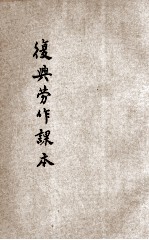 復興勞作課本